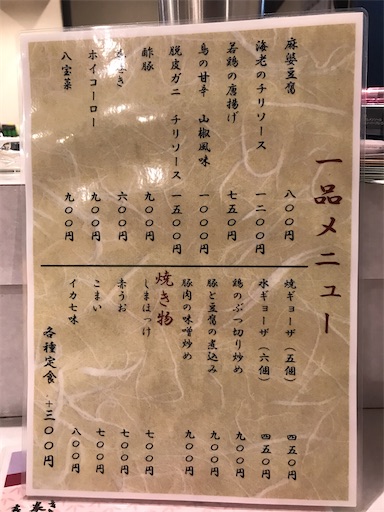 一品メニュー
麻婆豆腐 八〇〇円
海老のチリソース 一二〇〇円
若鶏の唐揚げ 七五〇円
鳥の甘辛 山椒風味 一〇〇〇円
脱皮ガニ チリソース 一五〇〇円
酢豚 九〇〇円
六〇〇円
ホイコーロー 九〇〇円
八宝菜 九〇〇円
焼ギョーザ（五個） 四五〇円
水ギョーザ（六個） 四五〇円
鶏のぶつ切り炒め 九〇〇円
豚と豆腐の煮込み 九〇〇円
豚肉の味噌炒め 九〇〇円
焼き物
しまほっけ 七〇〇円
赤うお 七〇〇円
こまい 七〇〇円
イカ七味 八〇〇円
各種定食・＋三〇〇円